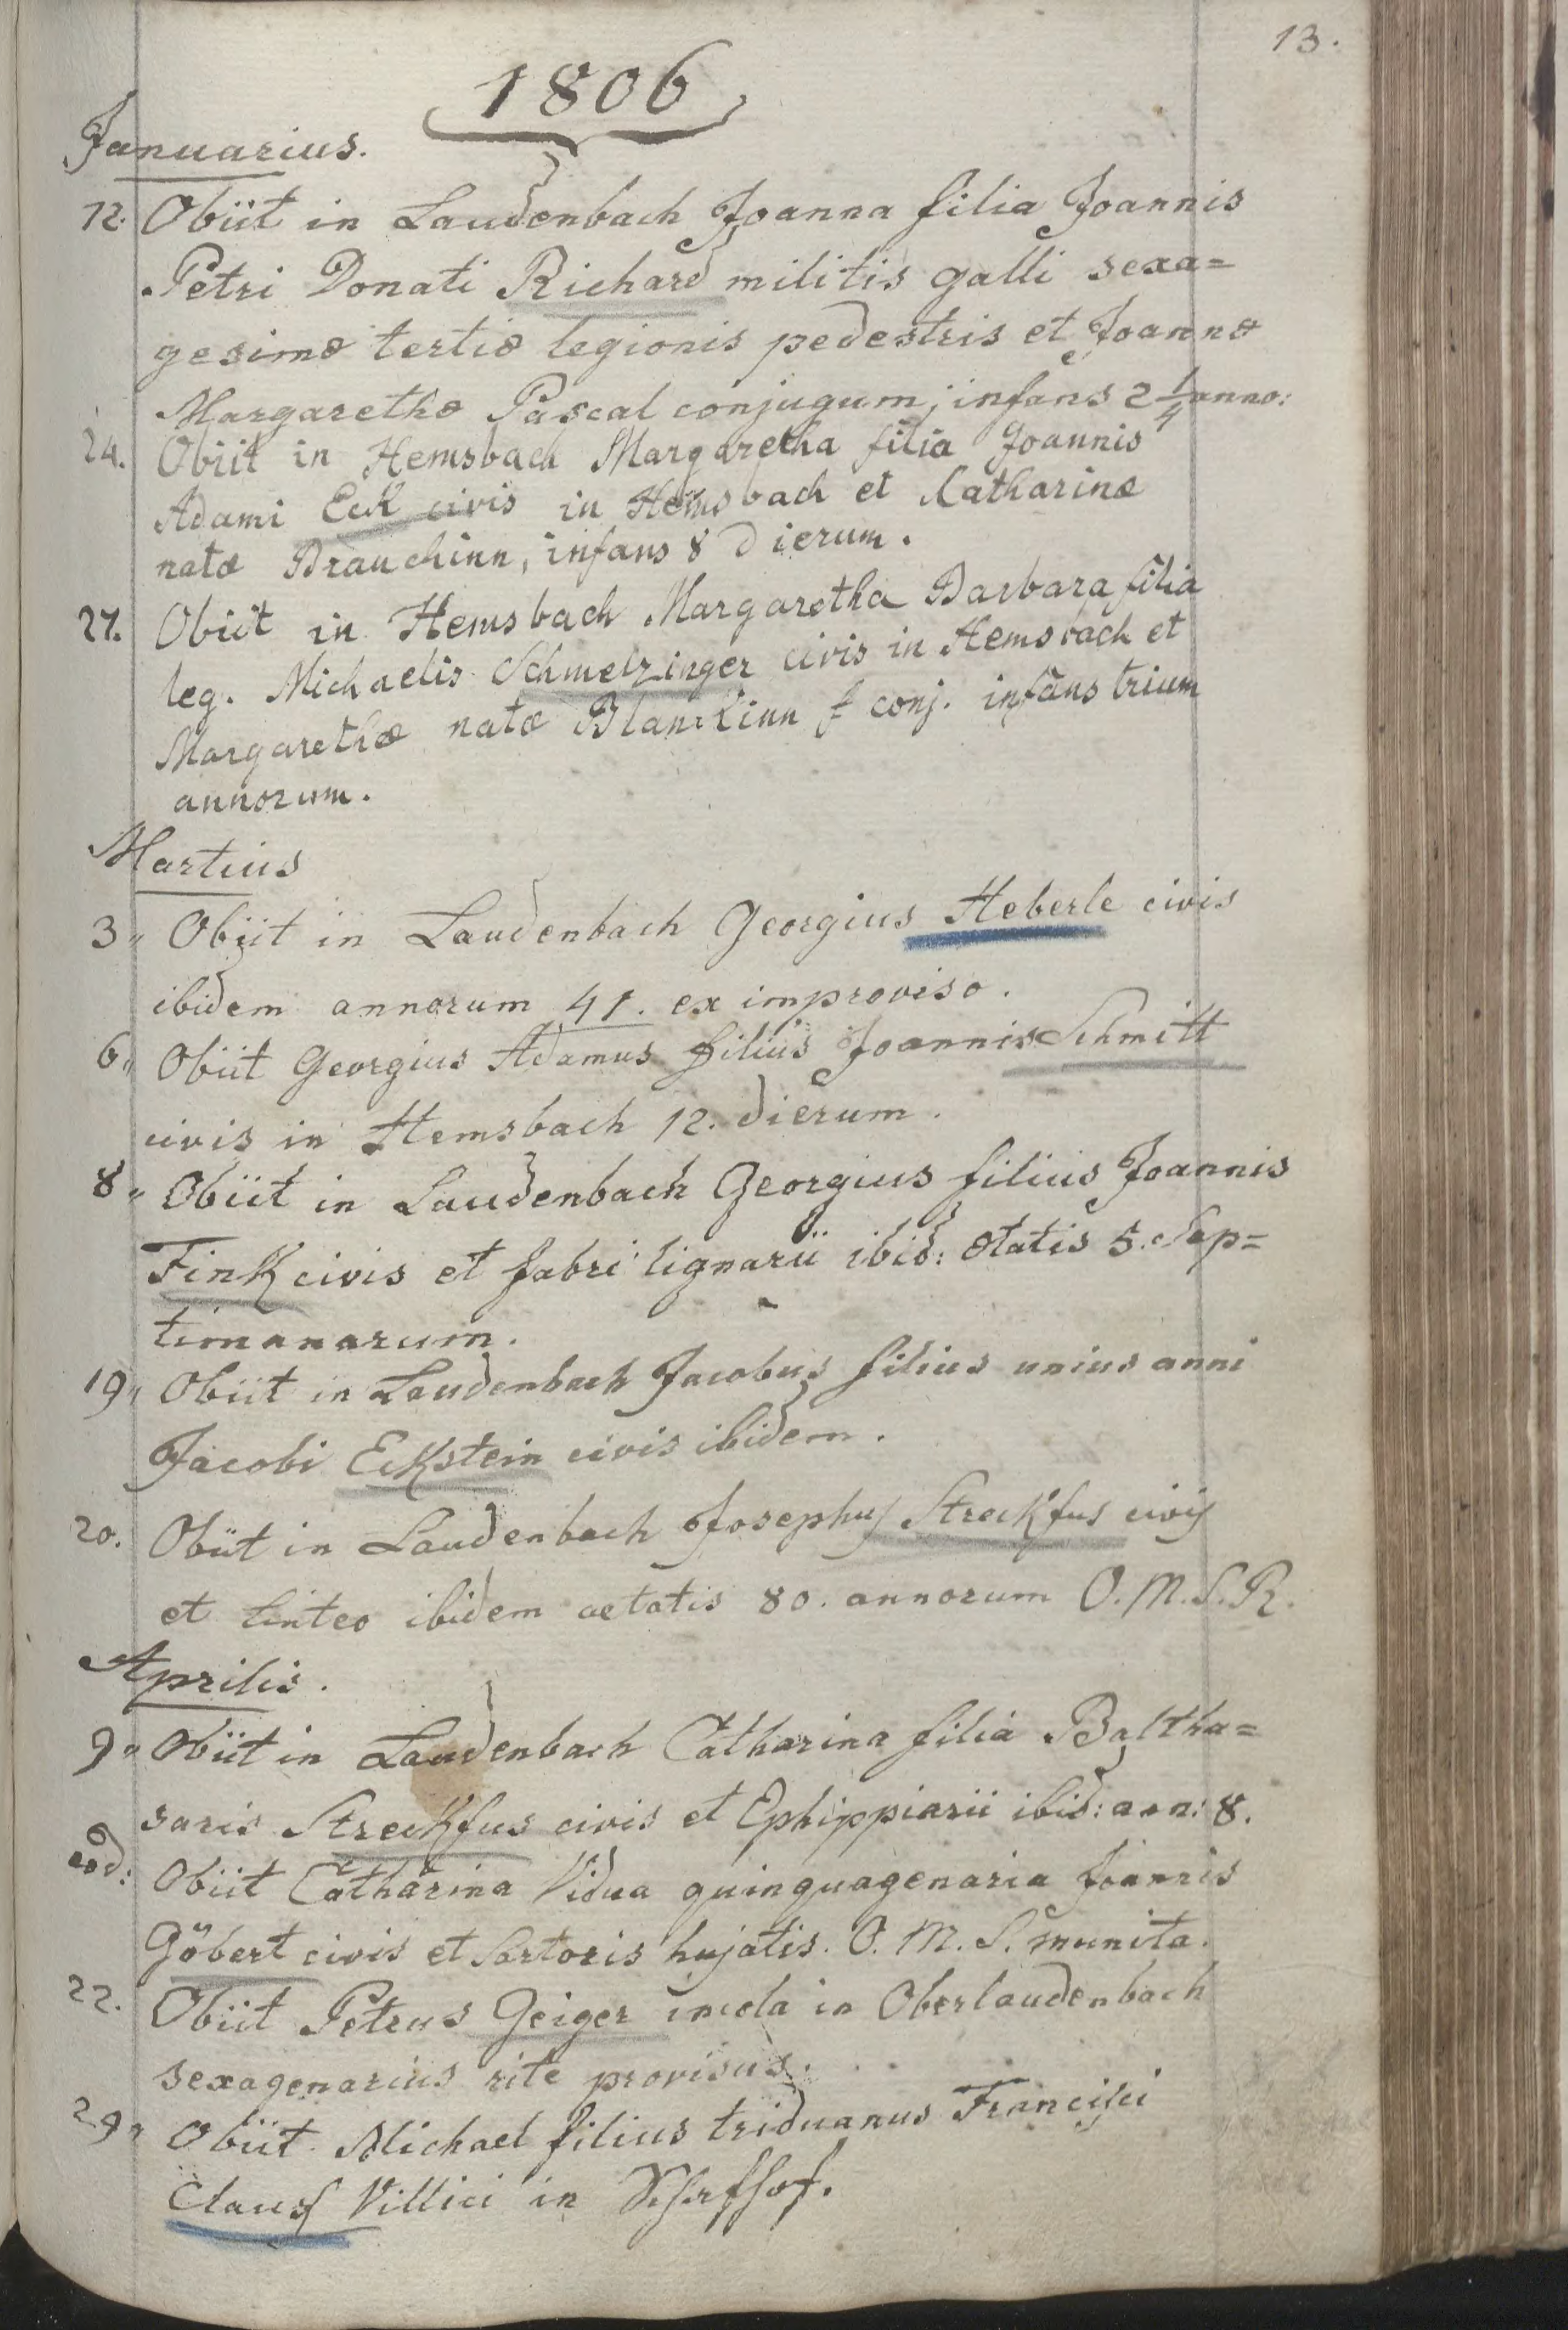 13.
1806
Januarius.
12. Obiit in Laudenbach Joanna filia Joannis
Petri Donati Richard militis galli sexa=
gesimæ tertiæ legionis pedestris et Joannæ
Margarethæ Pascal conjugum, infans 2 1/4 anno:
24. Obiit in Hemsbach Margaretha filia Joannis
Adami Eck civis in Hemsbach et Katharinæ
natæ Brauchinn, infans 8 dierum.
27. Obiit in Hemsbach Margaretha Barbara filia
leg. Michaelis Schmelzinger civis in Hemsbach et
Margarethæ natæ conj. infans trium
annorum.
Martius
3 „ Obiit in Laudenbach Georgius Heberle civis
ibidem annorum 41. ex improviso.
6 „ Obiit Georgius Adamus filius Joannis Schmitt
civis in Hemsbach 12. dierum.
8 „ Obiit in Laudenbach Georgius filius Joannis
Fink civis et fabri lignarii ibid: ætatis 5. Sep=
timanarum.
19 „ Obiit in Laudenbach Jacobus filius unius anni
Jacobi Eckstein civis ibidem.
20. Obiit in Laudenbach Josephus Streckfus civis
et linteo ibidem aetatis 80. annorum O. M. S. R.
Aprilis.
9 „ Obiit in Laudenbach Catharina filia Baltha=
saris Streckfus civis et Ephippiarii ibid: ann: 8.
9
eod: Obiit Catharina Vidua quinquagenaria Joannis
Göbert civis et Sartoris hujatis. O. M. S. munita.
22. Obiit Petrus Geiger incola in Oberlaudenbach
sexagenarius rite provisus.
29 „ Obiit Michael filius triduanus Francisci
Clauss Villici in Schafhof.